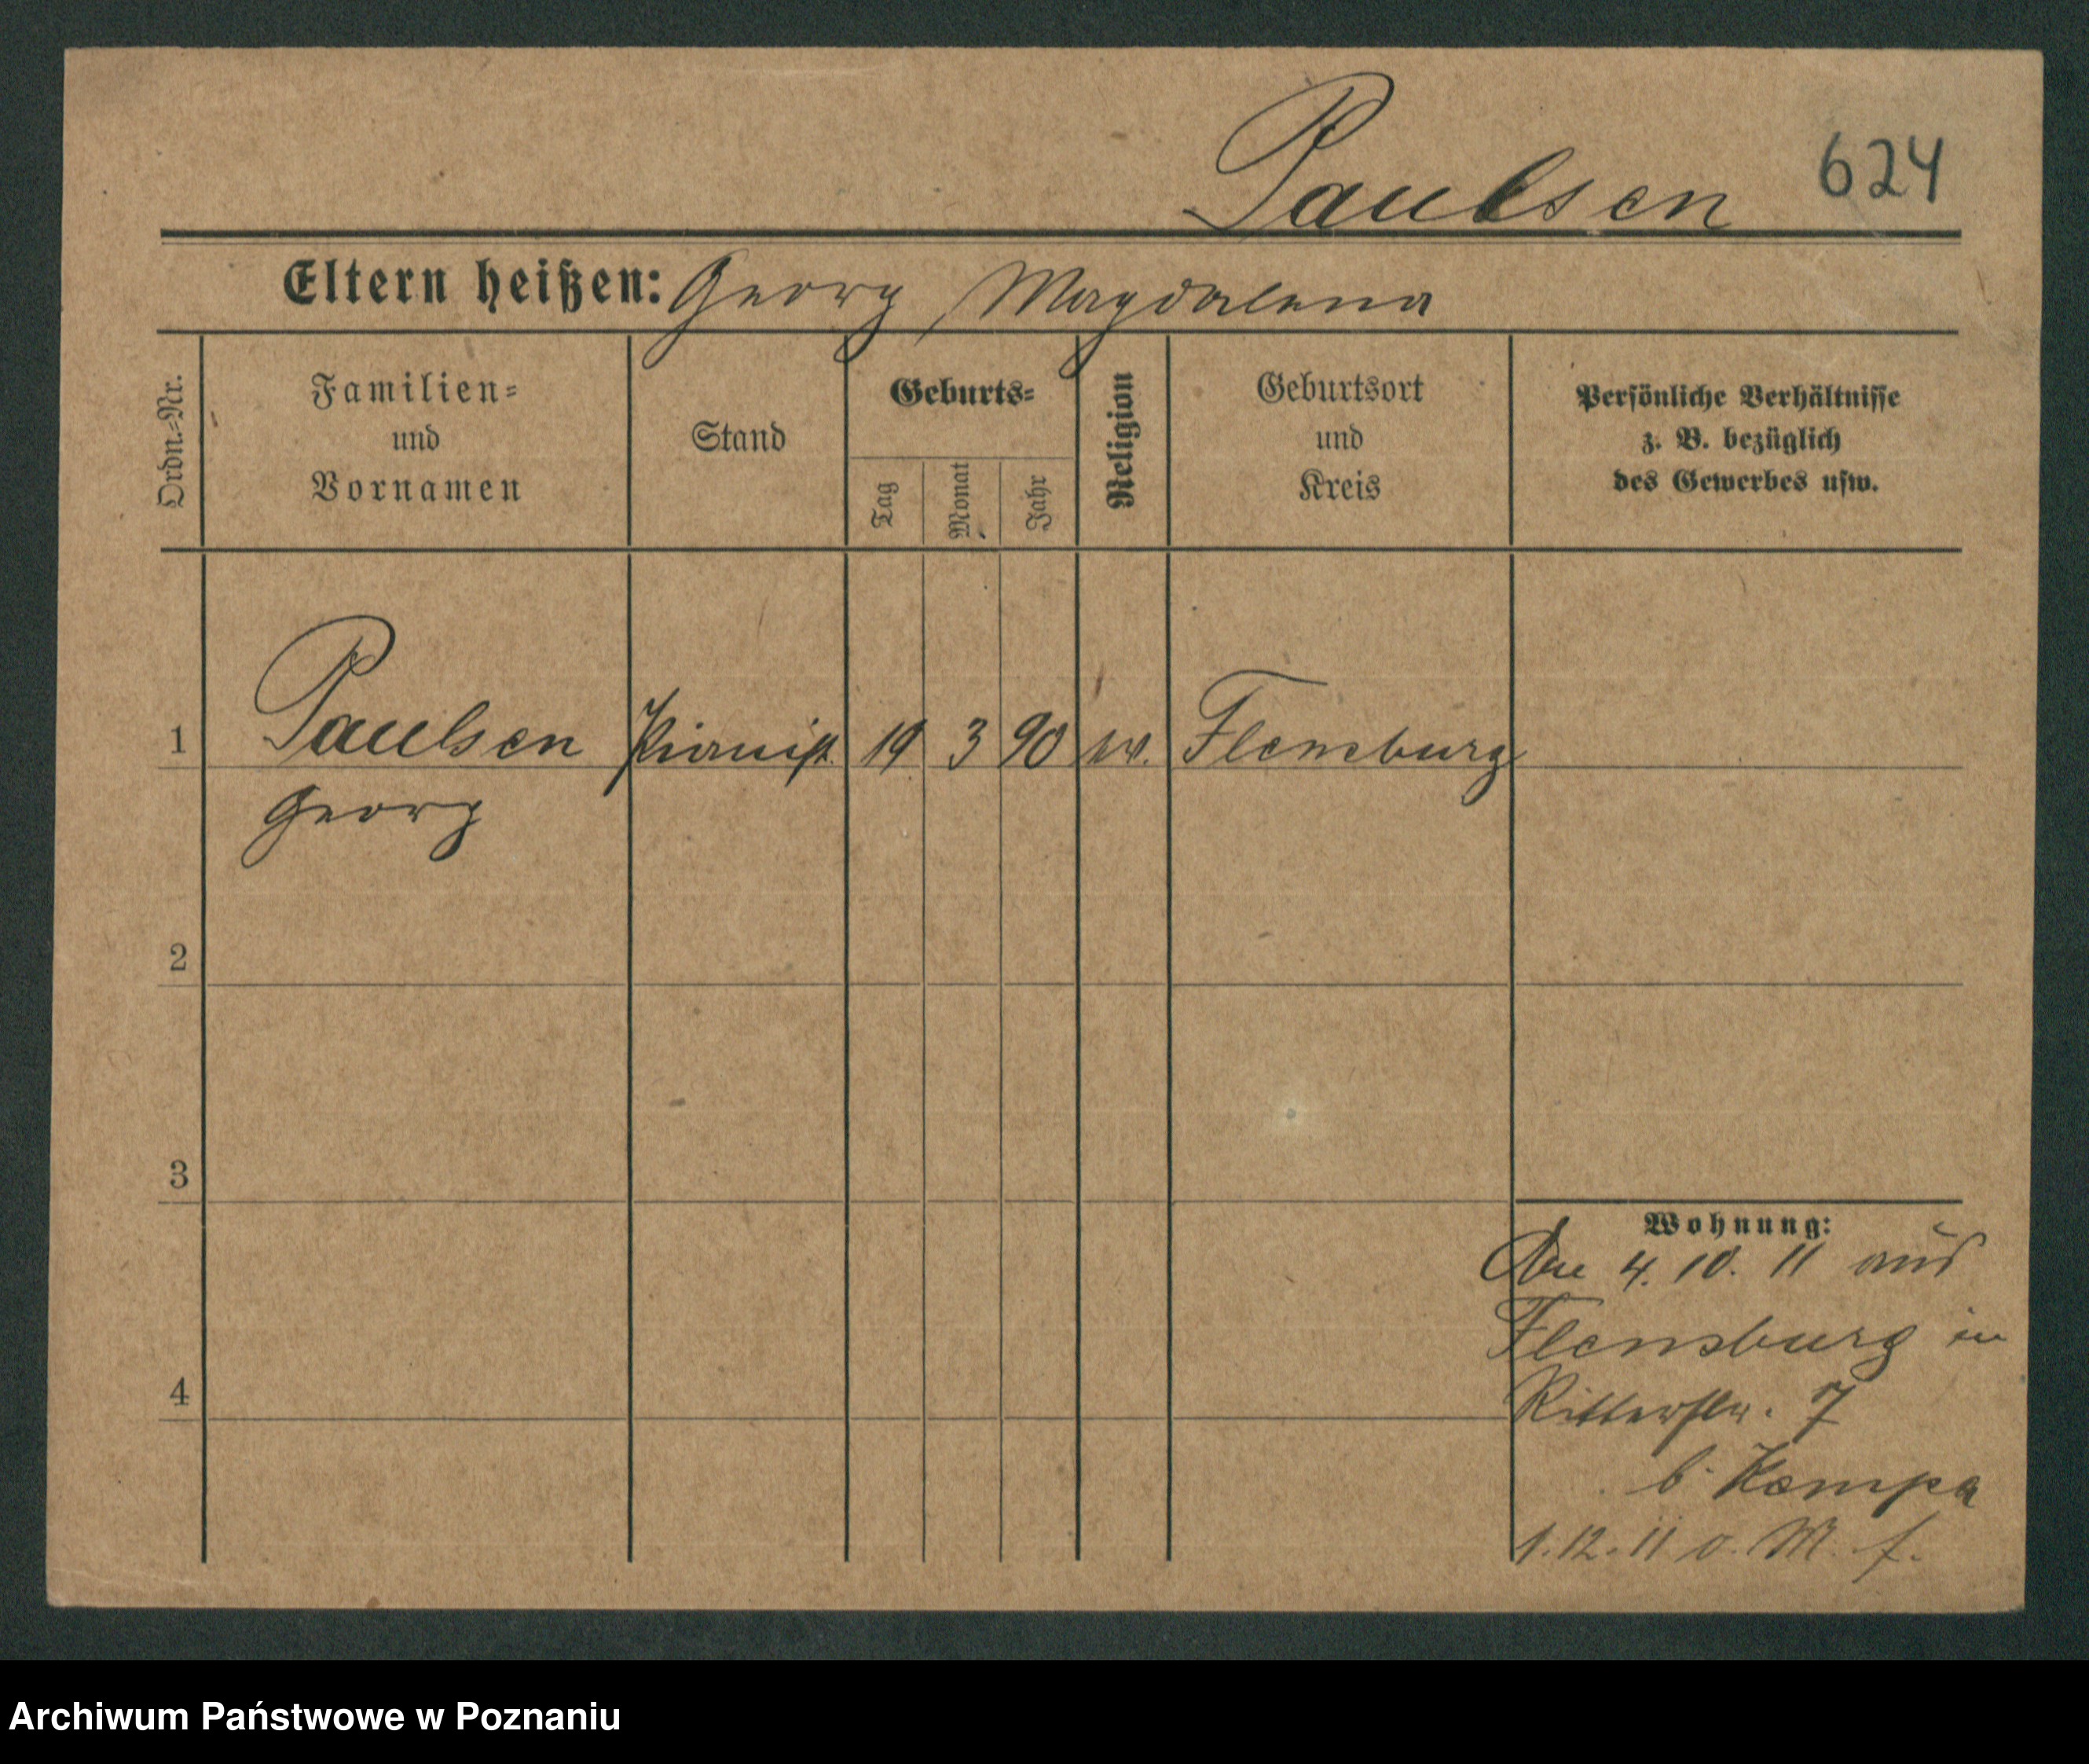 Paulsen 624
Eltern heißen: Georg Magdalena
Ordn.-Nr.
Familien-
und
Vornamen
Stand
Geburts-
Tag
Monat
Jahr
Religion
Geburtsort
und
Kreis
Persönliche Verhältnisse
z. B. bezüglich
des Gewerbes usw.
1 Paulsen Pianist. 19 3 90 Flensburg
Georg
2
3
4
Wohnung:
4. 10. 11 aus
Flensburg in
Ritterstr. 7
b. Kempa
1. 12. 11 o. M. f.
Archiwum Państwowe w Poznaniu